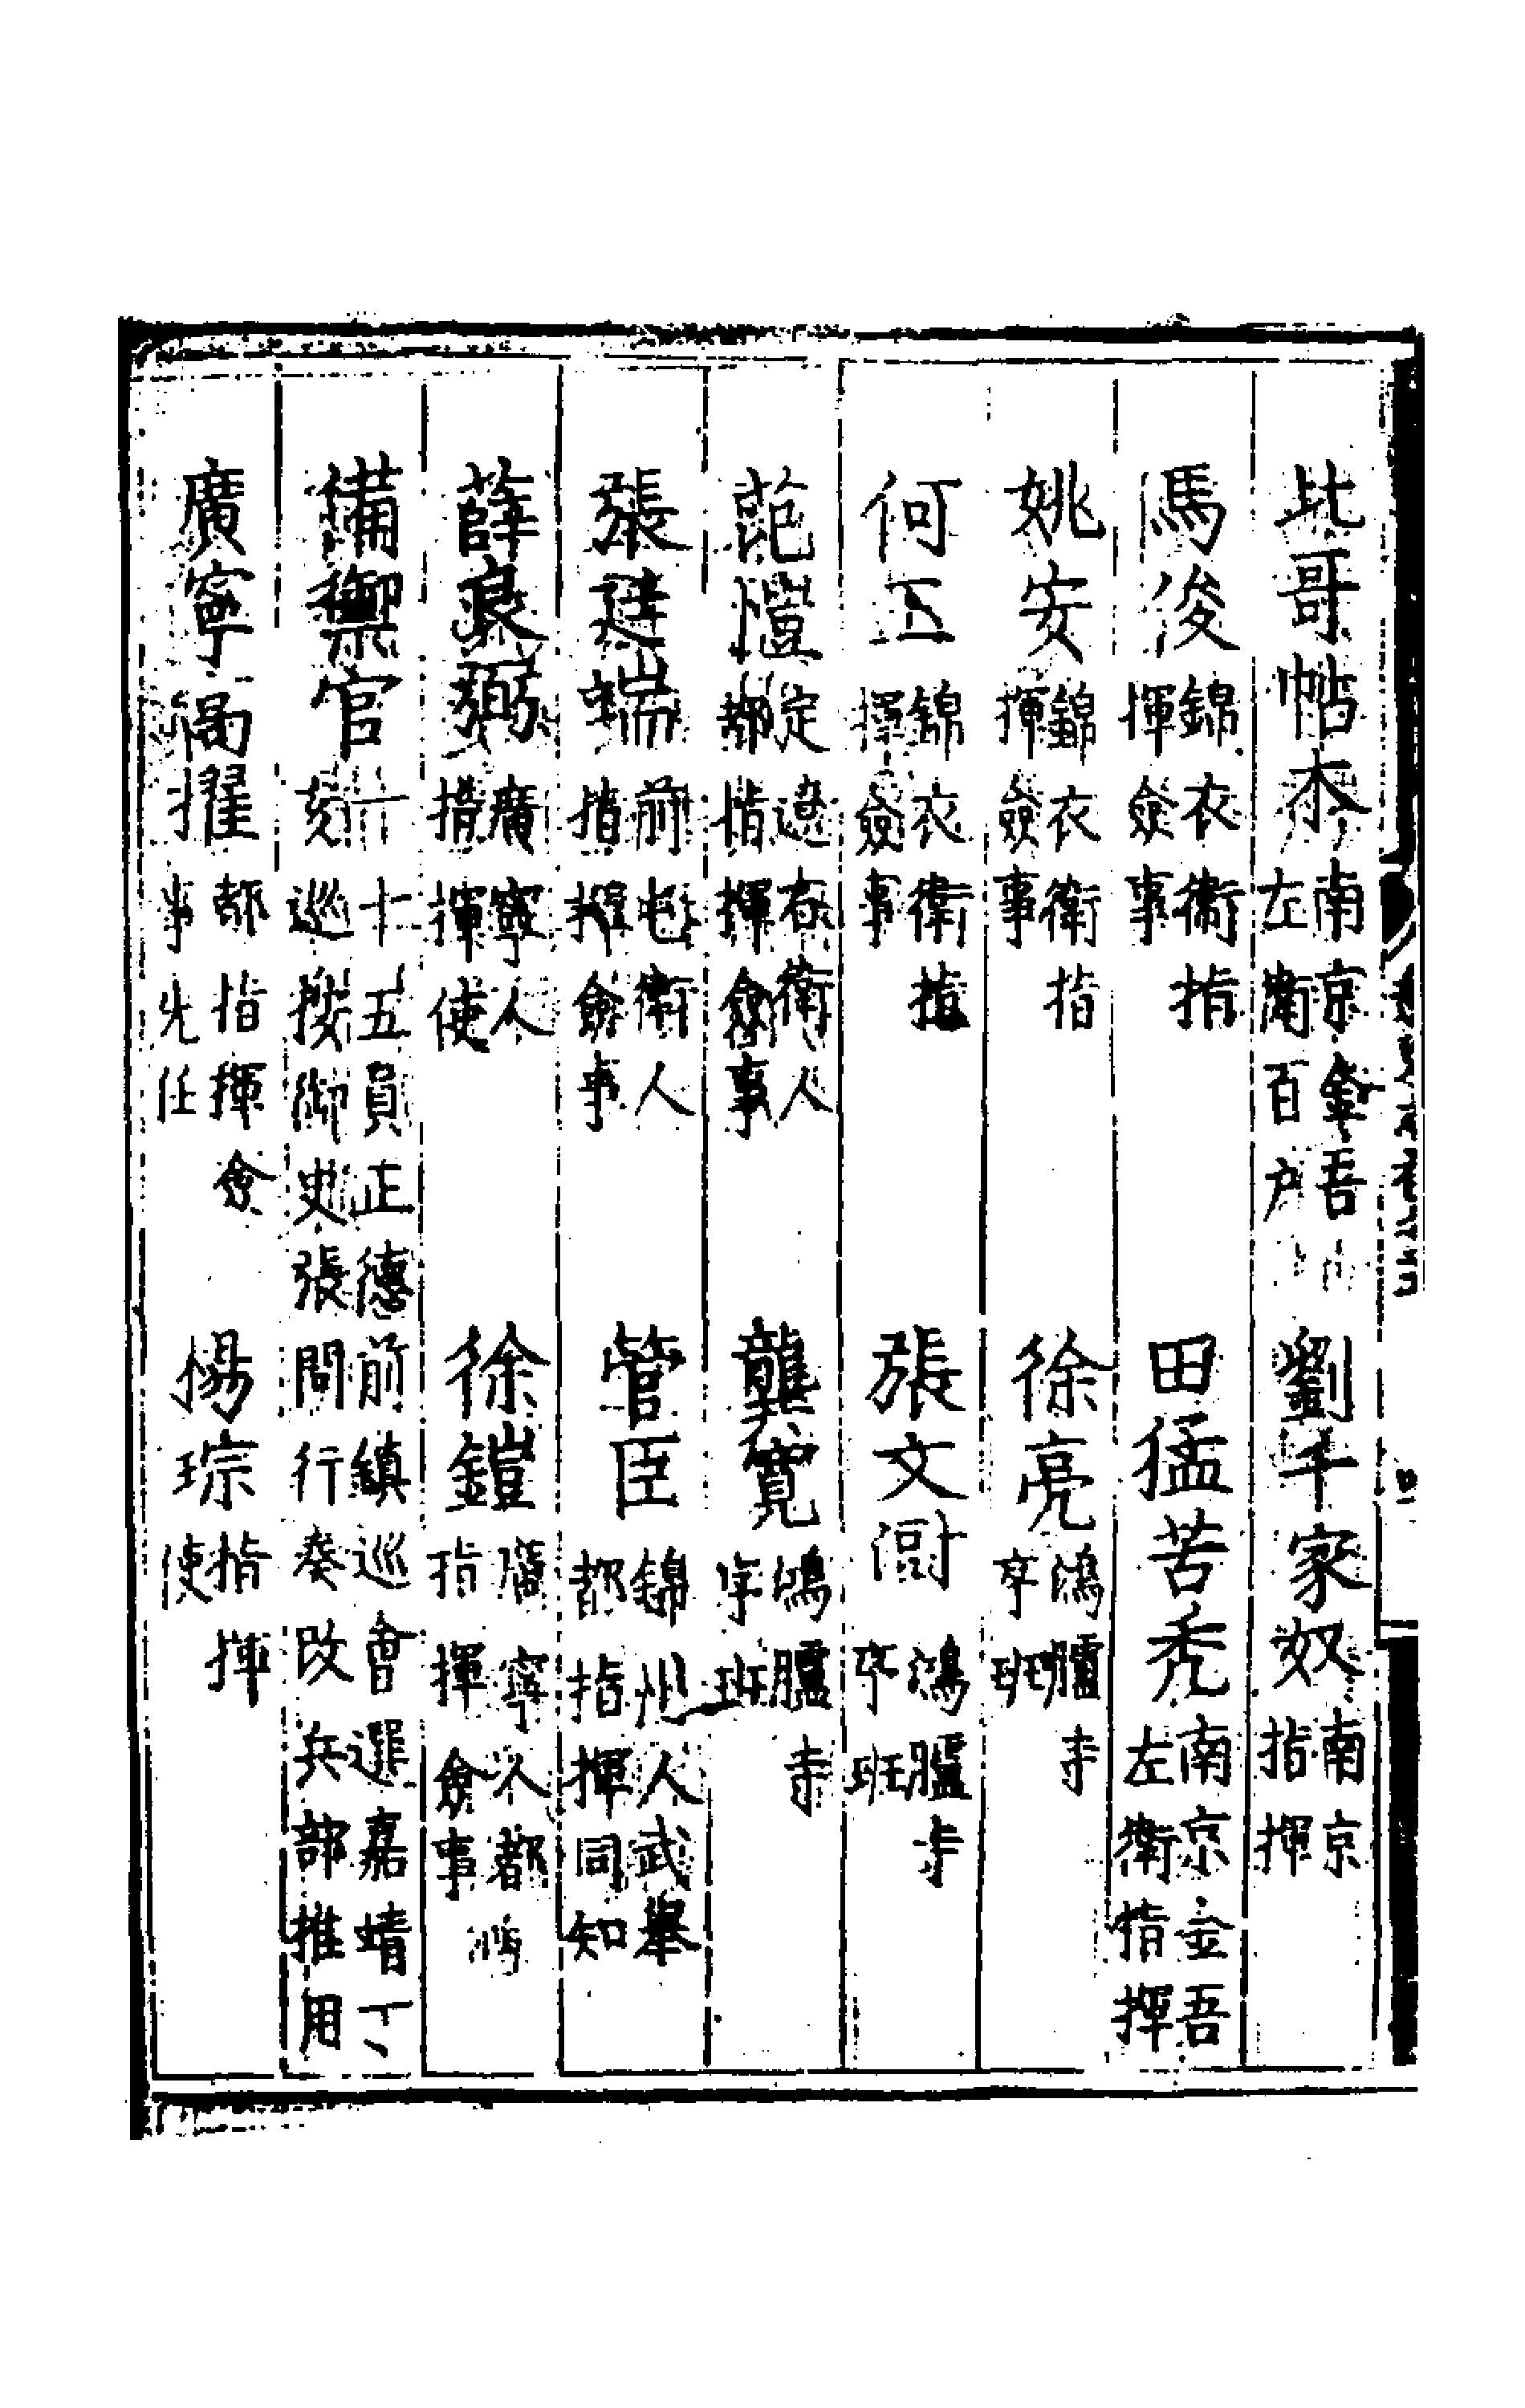 此哥帖木南京金吾左衛百户 劉千家奴南京指揮
馬俊錦衣衛指揮僉事 田猛苦禿南京金吾左衛指揮
姚安錦衣衛指揮僉事 徐亮鴻臚寺序班
何工錦衣衛指揮僉事 張文澍鴻臚寺序班
范愷定遼右衛人都指揮僉事 龔寬鴻臚寺序班
張建瑞前屯衛人指揮僉事 管臣錦州人武舉都指揮同知
薛良弼廣寧人指揮使 徐鎧廣寧人都指揮僉事
備禦官十五員正德前鎮巡會選嘉靖丁亥巡按御史張問行奏改兵部推用
廣寧禼擢都指揮僉事先任 楊琮指揮使